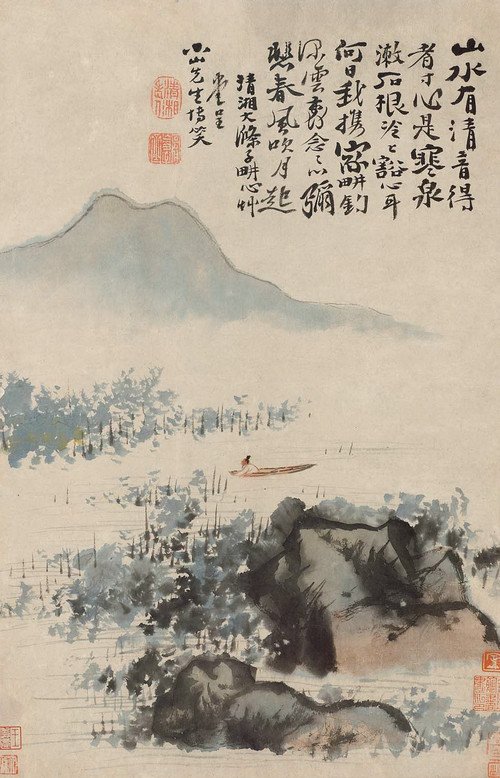 山水有清音得
者寸心是寒泉
漱石根冷〻豁心耳
何日我携家畊釣
深雲裏念之以彌
春風吹月起
清湘大滌子畊心艸
堂呈
小山先生博笑